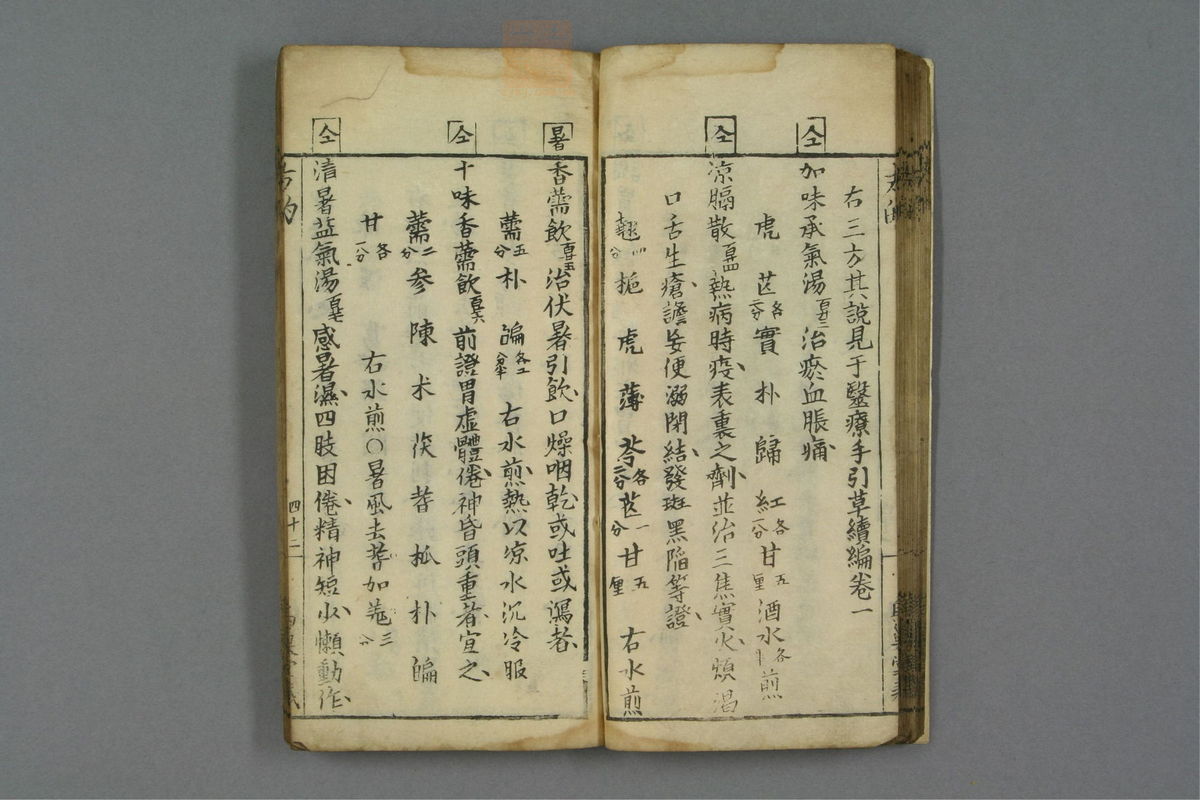 右三方其說見于毉療手引草續編卷一
仝
加味承氣湯 百十三 治瘀血脹痛
虎 芷 各二分 實 朴 歸 紅 各一分 甘 五厘 酒水各半煎
仝
涼膈散 百十四 熱病時疫表裏之劑並治三焦實火煩渴
口舌生瘡譫妄便溺閉結發斑黑陷等證
翹 四分 梔 虎 薄 芩 各二分 芒 一分 甘 五厘 右水煎
暑
香薷飲 百十五 治伏暑引飲口燥咽乾或吐或瀉者
薷 五分 朴 扁 右水煎熱以涼水沉冷服
仝
十味香薷飲 百十六 前證胃虛體倦神昏頭重者宜之
薷 二分 参 陳 术 茯 茋 朴 扁
甘 各一分 右水煎〇暑風去茋加羗 三分
仝
清暑益氣湯 百十七 感暑濕四肢困倦精神短少懶動作
四十三